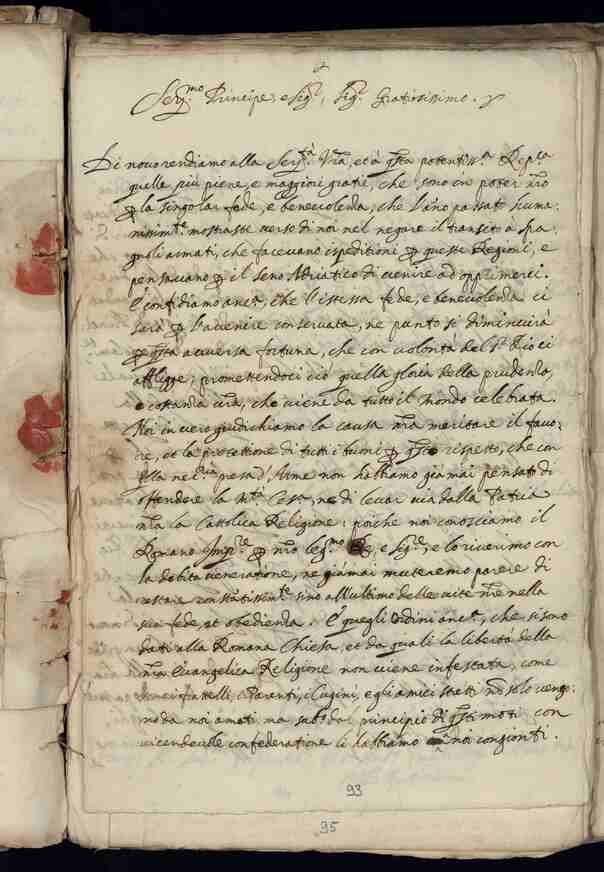 Ser.mo Principe, e Sig.r, Sig.r Gratiosissimo.
Di nuovo rendiamo alla Ser.tà V.ra, et à q.sta potentiss.a Rep.ca
quelle più piene, e maggiori gratie, che sono in poter n.ro
p la singolar fede, e benevolenza, che l'año passato huma:
nissim.te mostraste verso di noi nel negare il transito à Spa
gnoli armati, che facevano ispeditioni p queste Regioni, e
pensavano p il seno Adriatico di venire ad opprimerci.
E confidiamo anc.a, che l'istessa fede, e benevolenza ci
serà p l'avvenire conservata, ne punto si diminuirà
p q.sta avversa fortuna, che con volontà del S.r Dio ci
affligge; promettendoci ciò quella gloria della prudenza,
e costanza v.ra, che viene da tutto il Mondo celebrata.
Noi in vero giudichiamo la causa n.ra meritare il favo:
re, et la protettione di tutti i buoni p q.sto rispetto, che con
presa d'Arme non habbiamo giamai pensato di
offendere la M.tà Ces.a, ne di levar via dalla Patria
n.ra la Cattolica Religione: poiche noi conosciamo il
Romano Imp.re p n.ro leg.mo Rè, e Sig.re, e lo riverimo con
la debita veneratione, ne giamai muteremo parere di
restare constantissim.te sino all'ultimo delle vite n.re nella
sua fede, et obedienza. E quegli Ordini anc.a, che si sono
dati alla Romana Chiesa, et da quali la libertà della
n.ra Evangelica Religione non viene infestata, come
fratelli, i Parenti, i Cugini, e gli amici stetti nõ solo vengo:
no da noi amati, ma sub.o dal principio di q.sti moti con
vicendevole confederatione li habbiamo à noi congionti.
93
95